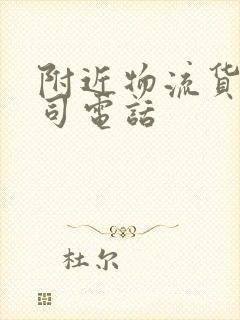 附近物流货
司電話
杜尔